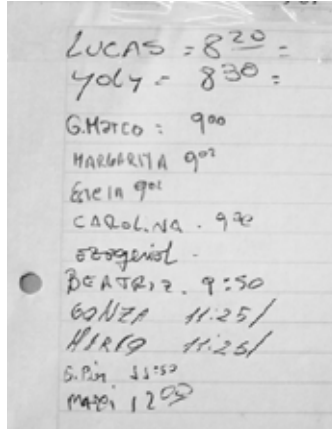 LUCAS = 8 20 =
YOLY = 830 =
G.Marco : 900
MARGARITA 902
902
CAROLINA . 920
BEATRIZ . 9:50
GONZA 11:25/
MARIO 11:25/
11:50
1200